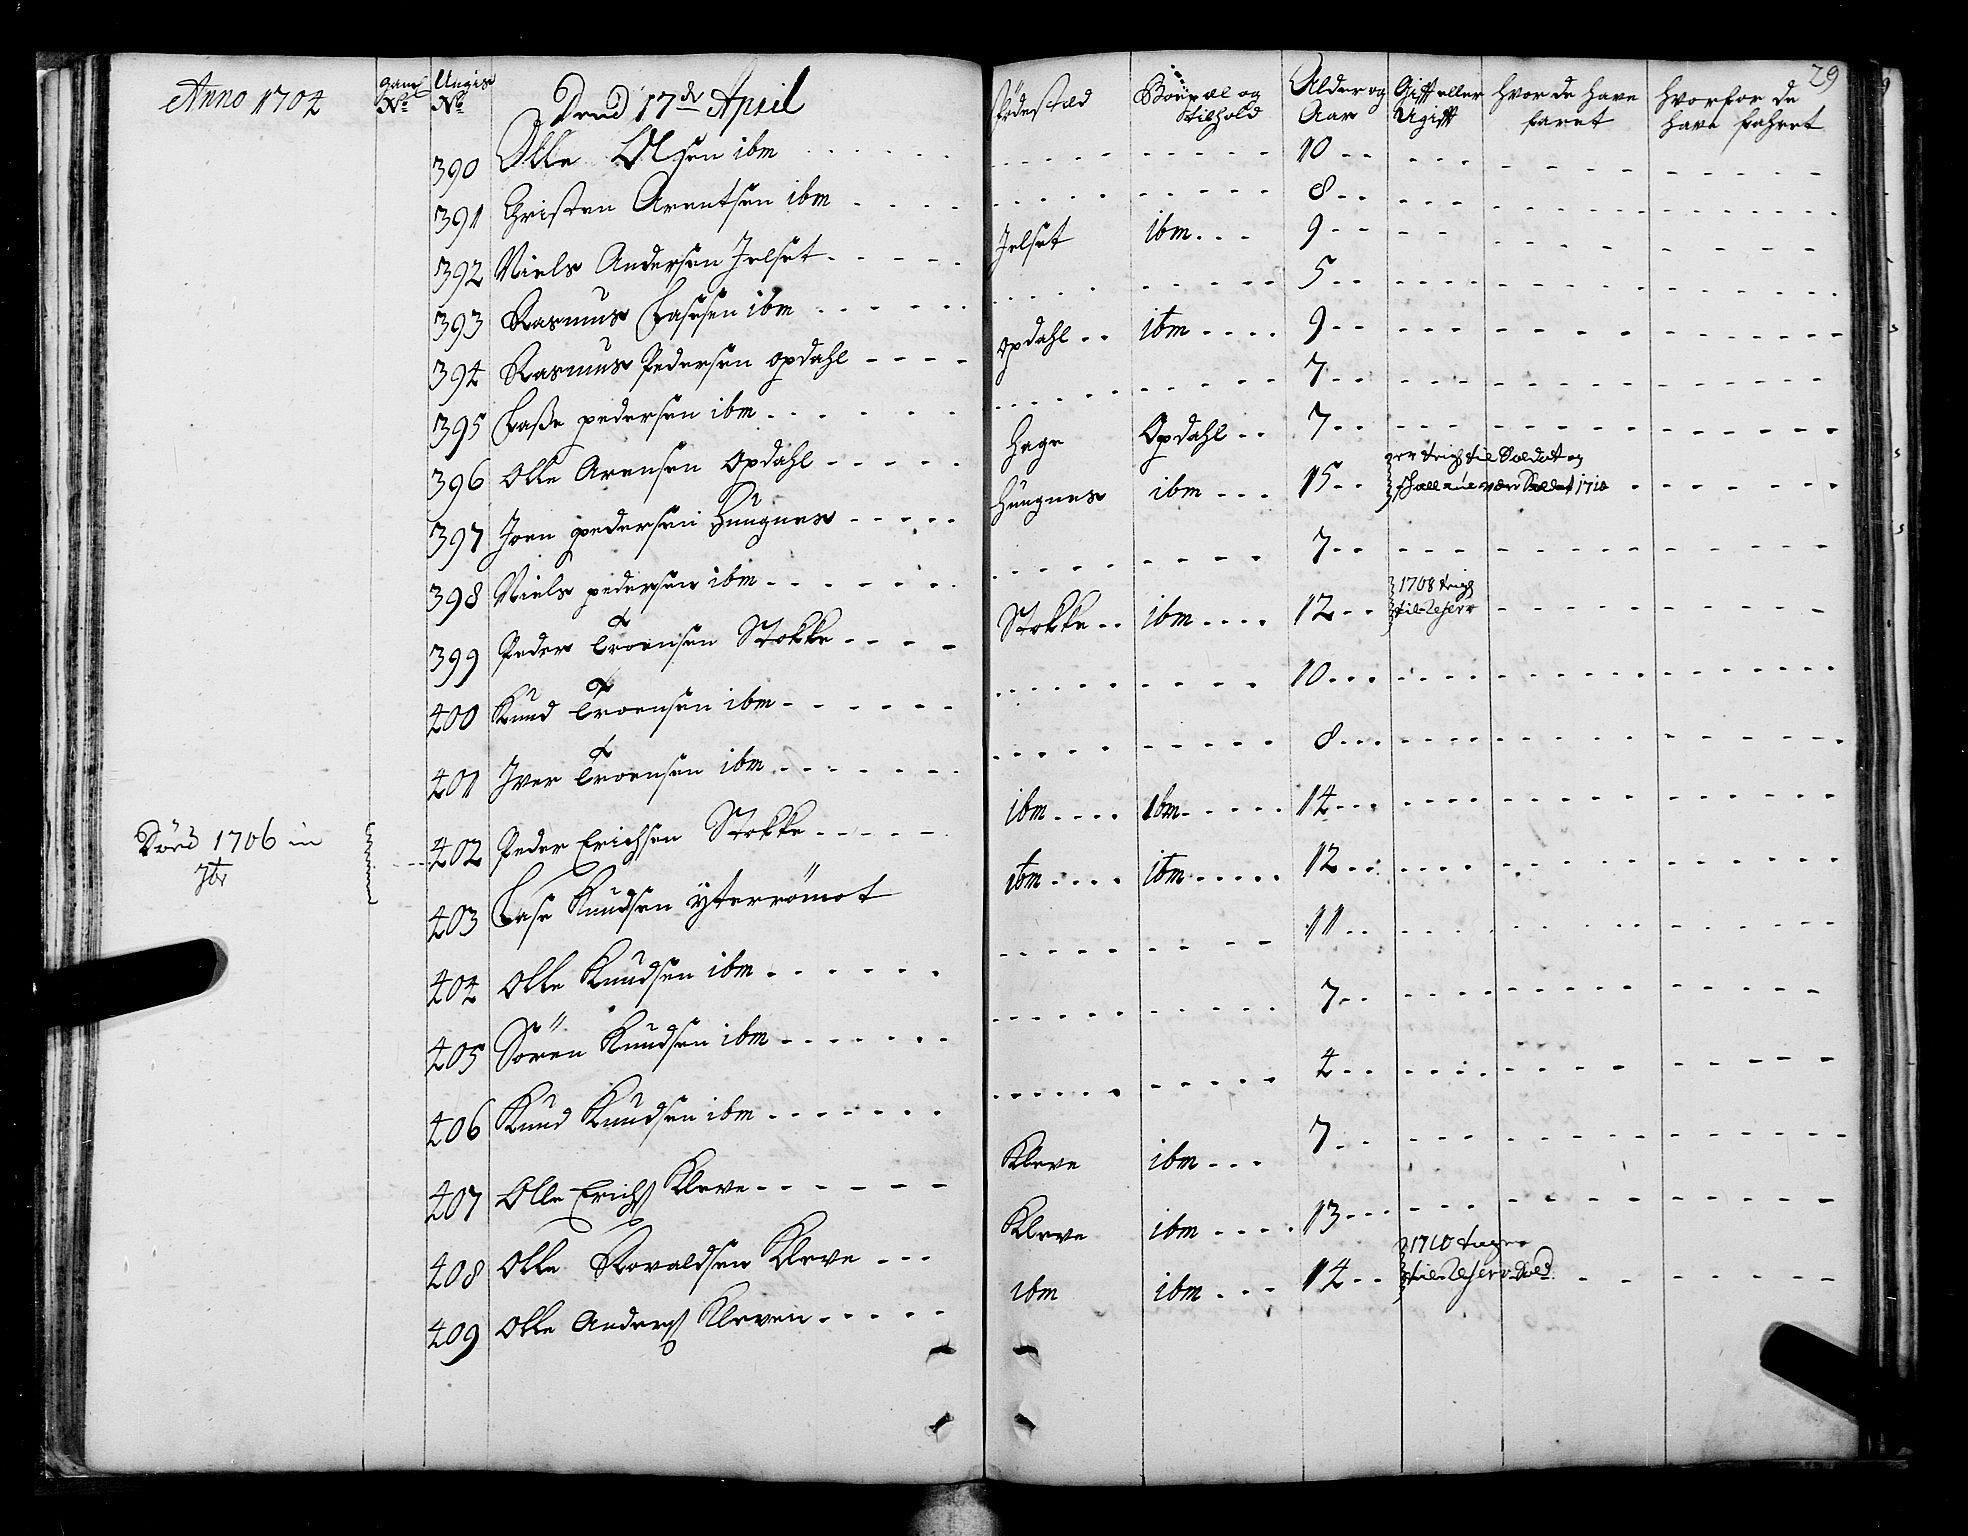 29
Anno 1704 Gaml. No Ungis No Dend 17de April Fødestæd Boepæl og tilhold Alder og Aar Gifft eller Ugifft hvor de have faret hvorfor de have fahret
390 Olle Olsen ibm 10
391 Christen Arentsen ibm 8
392 Niels Andersen Jelset Jelset ibm 9
393 Rasmus Lassesen ibm 5
394 Rasmus Pedersen opdahl opdahl ibm 9
395 Lasse pedersen ibm 7
396 Olle Arensen Opdahl Hage Opdahl 7
397 Joen pedersen Hüügnes Hüngnes ibm 15 er til Soldat og skall 1710
398 Niels pedersen ibm 7
399 Peder Troensen Stokke Stokke ibm 12 1708
400 Knud Troensen ibm 10
401 Iver Troensen ibm 8
402 Peder Erichsen Stokke ibm ibm 14
Död 1706 in 7br
403 Lase Knudsen ytterrömot ibm ibm 12
404 Olle Knudsen ibm 11
405 Sören Knudsen ibm 7
406 Knud Knudsen ibm 4
407 Olle Erichs Kleve Kleve ibm 7
408 Olle Roraldsen Kleve Kleve ibm 13
409 Olle Anders Kleven ibm ibm 14 1710 til